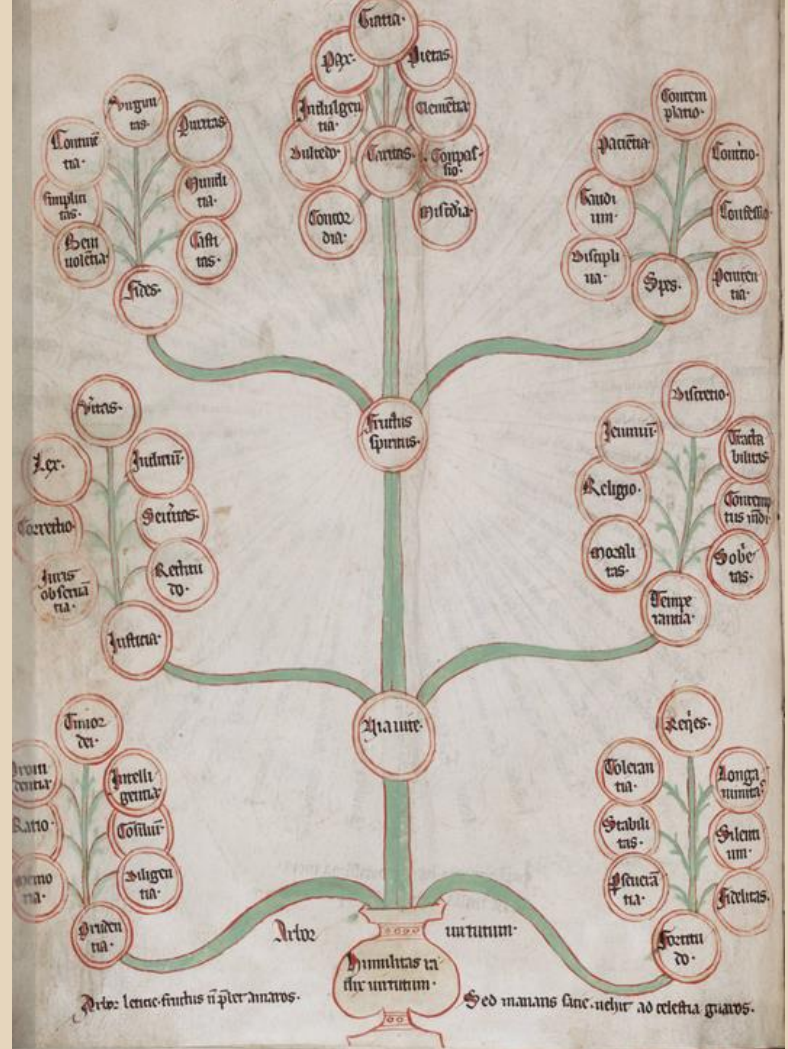 Gratia·
Pax·
Pietas·
Indulgen
tia·
Clemētia·
Dulcedo·
Caritas·
Compas
sio·
Concor
dia·
Mis͞dia·
Virgini
tas·
Contine͞
tia·
Puritas
Simplici
tas·
Mundi
tia·
Beni
uolētia·
Casti
tas·
Fides·
Contem
platio·
Paciētia·
Contricio·
Gaudi
um·
Confessio
Discipli
na·
Peniten
tia·
Spes·
Fructus
spiritus·
V͛itas·
Lex·
Iudiciū·
Correctio·
Seu͛itas·
Iuris
obseruā
tia·
Rectitu
do·
Iusticia·
Discretio·
Ieiuniū·
Tracta
bilitas
Religio·
Contemp
tus mūdi·
Morali
tas·
Sob͛e
tas·
Tempe
rantia·
Timor
dei·
Intelli
gentia·
Ratio·
Cōsiliū·
Diligen
tia·
Pruden
tia·
Requies·
Toleran
tia·
Longa
nimita͛s
Stabili
tas·
Silenti
um·
Perseuerā
tia·
Fidelitas·
Fortitu
do·
Arbor uirtutum·
Humilitas ra
dix uirtutum·
Arbor leticie·fructus
amaros·
Sed manans
uehit ad celestia gnaros·